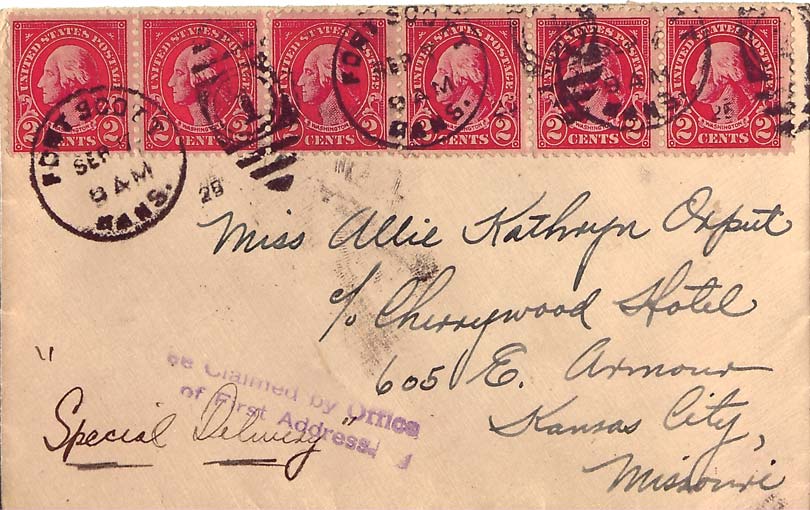 UNITED STATES POSTAGE UNITED STATES POSTAGE UNITED STATES POSTAGE UNITED STATES POSTAGE UNITED STATES POSTAGE UNITED STATES POSTAGE
WASHINGTON WASHINGTON WASHINGTON WASHINGTON WASHINGTON
2 CENTS 2 2 CENTS 2 2 CENTS 2 2 CENTS 2 2 CENTS 2 2 CENTS 2
FORT SCOTT
SEP
9 AM
KANS.
FORT SCOTT
SEP
9 AM
KANS.
AM
KANS.
25
Miss Allie Kathryn Orput
c/o Cherrywood Hotel
605 E. Armour
Kansas City,
Missouri
"Special Delivery"
ee Claimed by Office
of First Address.